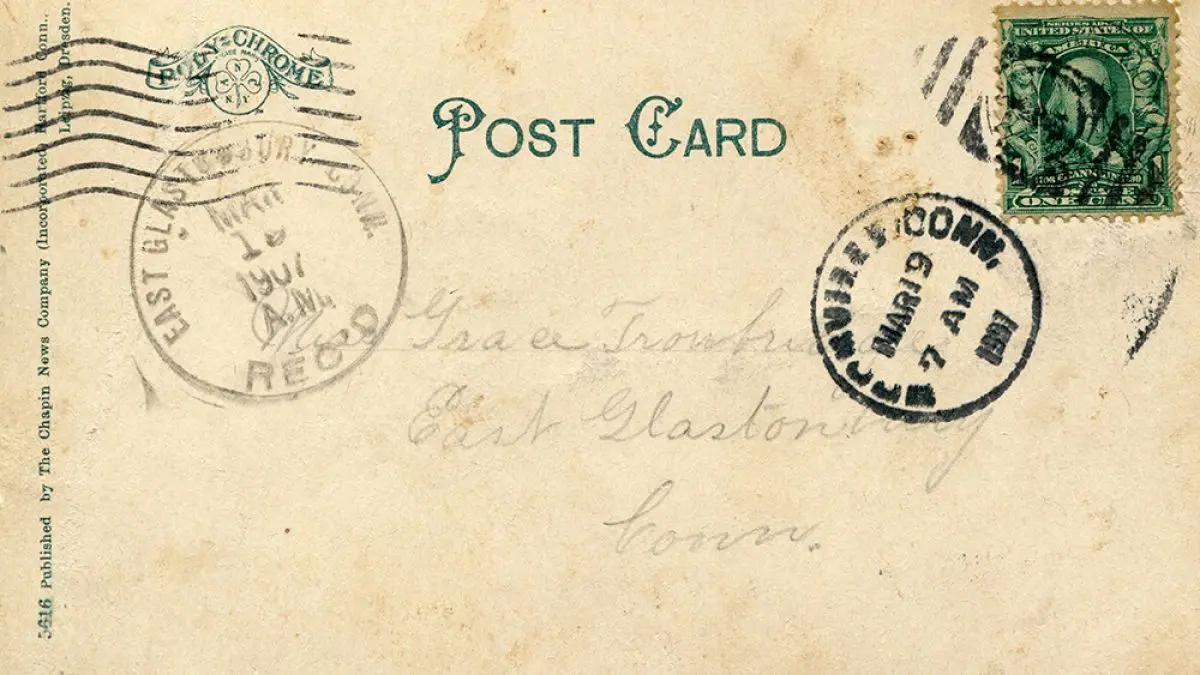 POLY-CHROME
TRADE MARK
N
N N
N Y
POST CARD
SERIES 1902
UNITED STATES OF
AMERICA
1 1
ONE CENT
EAST GLASTONBURY CONN.
MAR
1907
A.M.
REC'D
CONN.
MAR 19
7 AM
1907
Miss Grace Trowbridge
East Glastonbury
Conn.
5616 Published by The Chapin News Company (Incorporated) Hartford Conn..
Leipzig, Dresden.